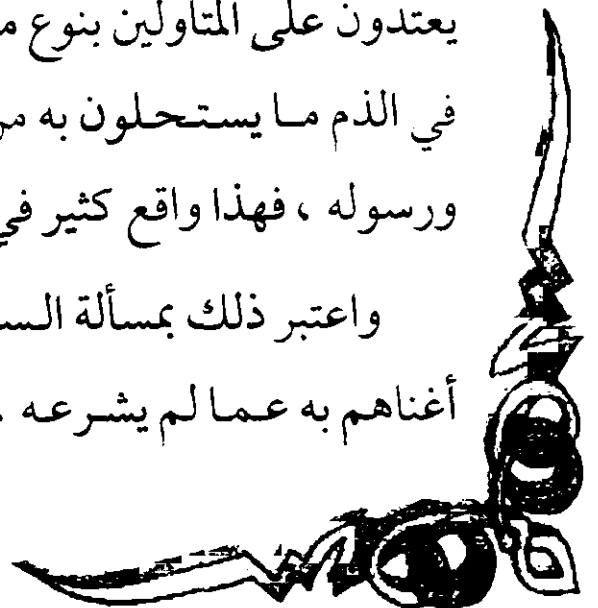 يعتدون على المتأولين بنوع
في الذم ما يستحلون به من
ورسوله ، فهذا واقع كثير في
واعتبر ذلك بمسألة
أغناهم به عما لم يشرعه